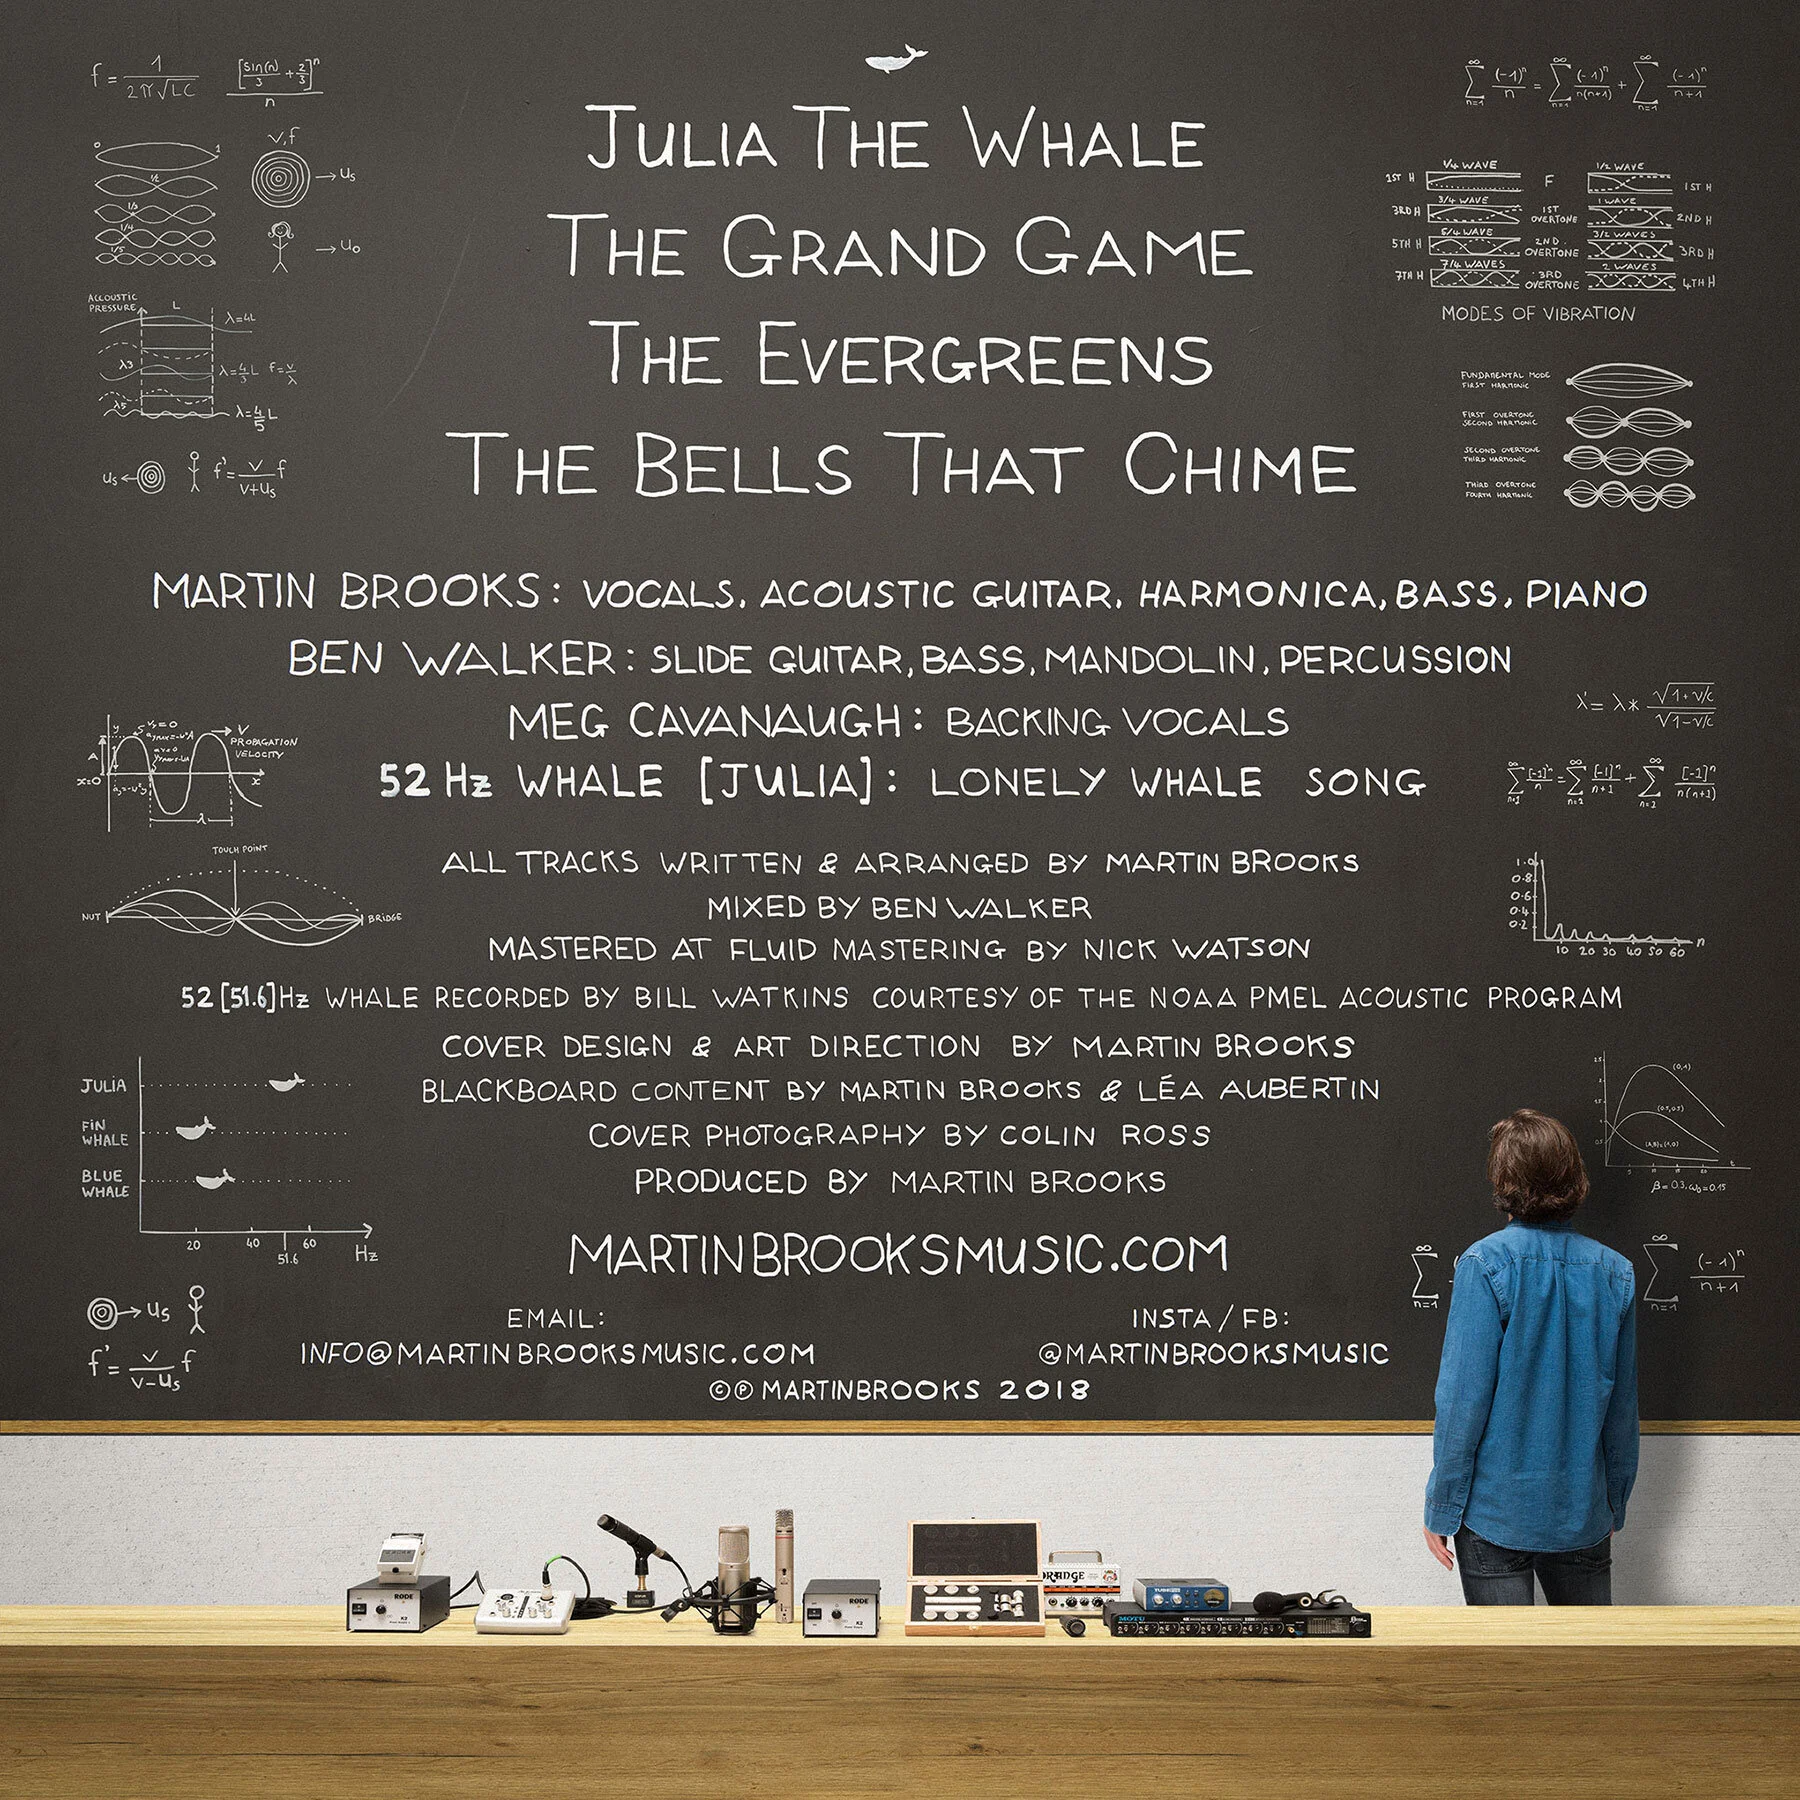 JULIA THE WHALE
THE GRAND GAME
THE EVERGREENS
THE BELLS THAT CHIME
MARTIN BROOKS: VOCALS, ACOUSTIC GUITAR, HARMONICA, BASS, PIANO
BEN WALKER: SLIDE GUITAR, BASS, MANDOLIN, PERCUSSION
MEG CAVANAUGH: BACKING VOCALS
52 Hz WHALE [JULIA]: LONELY WHALE SONG
ALL TRACKS WRITTEN & ARRANGED BY MARTIN BROOKS
MIXED BY BEN WALKER
MASTERED AT FLUID MASTERING BY NICK WATSON
52 [51.6] Hz WHALE RECORDED BY BILL WATKINS COURTESY OF THE NOAA PMEL ACOUSTIC PROGRAM
COVER DESIGN & ART DIRECTION BY MARTIN BROOKS
BLACKBOARD CONTENT BY MARTIN BROOKS & LÉA AUBERTIN
COVER PHOTOGRAPHY BY COLIN ROSS
PRODUCED BY MARTIN BROOKS
MARTINBROOKSMUSIC.COM
EMAIL:
INFO@MARTINBROOKSMUSIC.COM
INSTA / FB:
@MARTINBROOKSMUSIC
©℗ MARTINBROOKS 2018
f = 1 / 2π√LC
[sin(n)/3 + 2/3]^n / n
0 1
1/2
1/3
1/4
1/5
v,f
→ us
→ uo
ACCOUSTIC
PRESSURE
L
λ=4L
λ3
λ=4/3 L f=v/λ
λ5
λ=4/5 L
us ←
f'= v/v+us f
y
V
PROPAGATION
VELOCITY
A
x=0
x
λ
TOUCH POINT
NUT
BRIDGE
JULIA
FIN
WHALE
BLUE
WHALE
20 40 51.6 60 Hz
→ us
f'= v/v-us f
∞ Σ n=1 (-1)^n / n = ∞ Σ n=1 (-1)^n / n(n+1) + ∞ Σ n=1 (-1)^n / n+1
1/4 WAVE
1/2 WAVE
1ST H F 1ST H
3/4 WAVE
1 WAVE
3RD H 1ST OVERTONE 2ND H
5/4 WAVE
3/2 WAVES
5TH H 2ND OVERTONE 3RD H
7/4 WAVES
2 WAVES
7TH H 3RD OVERTONE 4TH H
MODES OF VIBRATION
FUNDAMENTAL MODE
FIRST HARMONIC
FIRST OVERTONE
SECOND HARMONIC
SECOND OVERTONE
THIRD HARMONIC
THIRD OVERTONE
FOURTH HARMONIC
λ' = λ* √1+v/c / √1-v/c
∞ Σ n=1 [-1]^n / n = ∞ Σ n=1 [-1]^n / n+1 + ∞ Σ n=1 [-1]^n / n(n+1)
1.0
0.8
0.6
0.4
0.2
10 20 30 40 50 60 n
(0,1)
(0.5,0.5)
β=0.3, ω0=0.15
∞ Σ n=1
∞ Σ n=1 (-1)^n / n+1
RØDE
K2
RØDE
K2
ORANGE
TUBEPRE
MOTU